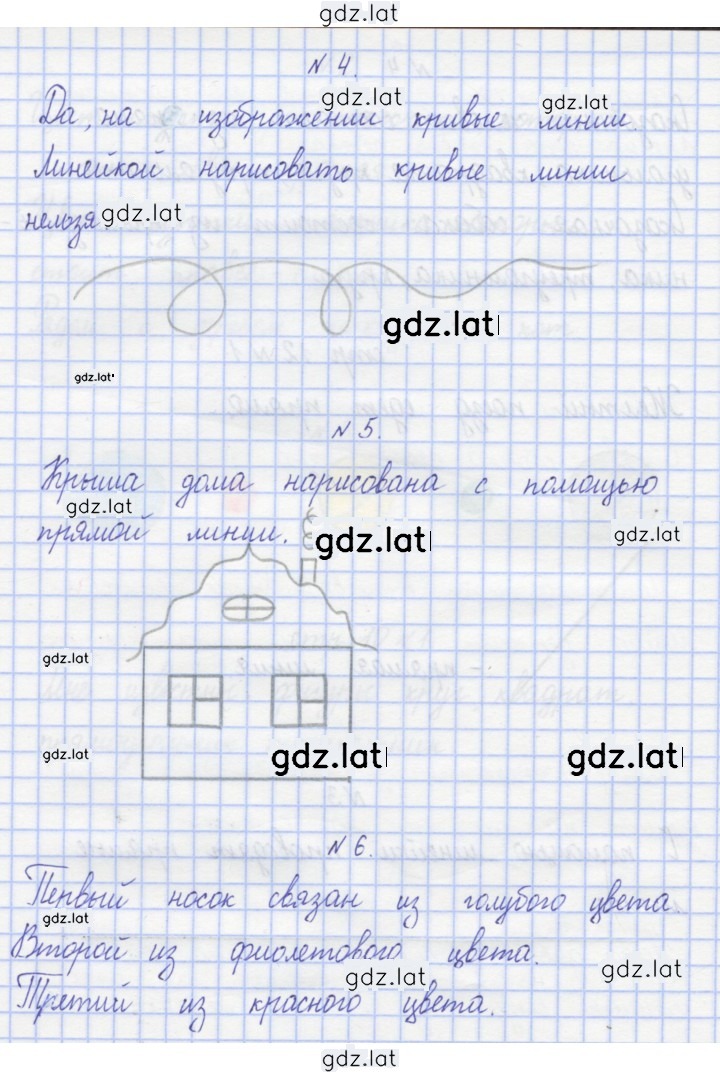 gdz.lat
N 4.
gdz.lat gdz.lat
Да, на изображении кривые линии.
Линейкой нарисовать кривые линии
нельзя. gdz.lat
gdz.lat
gdz.lat
N 5.
Крыша дома нарисована с помощью
gdz.lat
прямой линии. gdz.lat gdz.lat
gdz.lat
gdz.lat gdz.lat gdz.lat
N 6.
Первый носок связан из голубого цвета
gdz.lat
Второй из фиолетового цвета.
gdz.lat gdz.lat
Третий из красного цвета.
gdz.lat